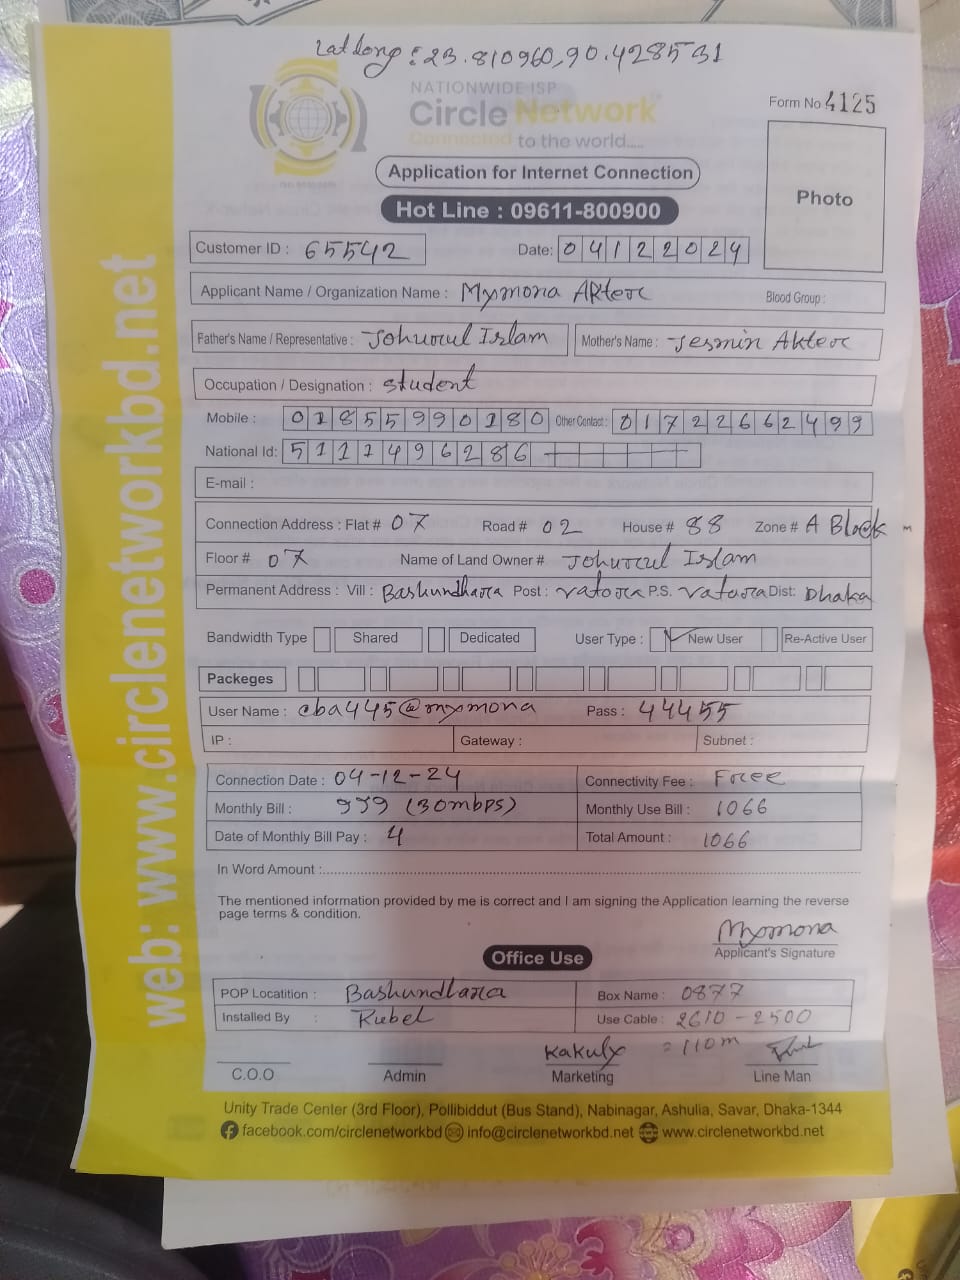 Lat Long : 23.810960,90.428531
NATIONWIDE ISP
Circle Network
Connected to the world.....
Form No 4125
Application for Internet Connection
Photo
Hot Line : 09611-800900
Customer ID : 65542 Date: 04122024
Applicant Name / Organization Name : Mymona Akter Blood Group :
Father's Name / Representative : Johurul Islam Mother's Name : Jesmin Akter
Occupation / Designation : student
Mobile : 01855990180 Other Contact : 01722662499
National Id: 5111496286
E-mail :
Connection Address : Flat # 07 Road # 02 House # 88 Zone # A Block
Floor # 07 Name of Land Owner # Johurul Islam
Permanent Address : Vill : Bashundhara Post : vatara P.S. vatara Dist: Dhaka
Bandwidth Type Shared Dedicated User Type : New User Re-Active User
Packeges
User Name : cba445@mymona Pass : 44455
IP : Gateway : Subnet :
Connection Date : 04-12-24 Connectivity Fee : Free
Monthly Bill : 999 (30mbps) Monthly Use Bill : 1066
Date of Monthly Bill Pay : 4 Total Amount : 1066
In Word Amount :
The mentioned information provided by me is correct and I am signing the Application learning the reverse
page terms & condition.
Mymona
Applicant's Signature
Office Use
POP Locatition : Bashundhara Box Name : 0877
Installed By : Rubel Use Cable : 2610 - 2500
= 110m
Kakuly
C.O.O Admin Marketing Line Man
Unity Trade Center (3rd Floor), Pollibiddut (Bus Stand), Nabinagar, Ashulia, Savar, Dhaka-1344
facebook.com/circlenetworkbd info@circlenetworkbd.net www.circlenetworkbd.net
web: www.circlenetworkbd.net